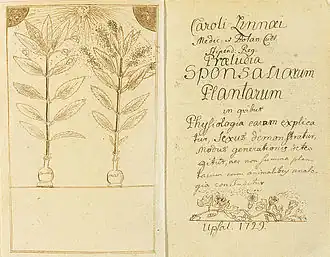 Caroli Linnæi
Medic. et Botan. Cult.
Stipend. Reg.
Præludia
Sponsaliarum
Plantarum
in quibus
Physiologia earum explica
tur, Sexus demonstratur,
Modus generationis dete
gitur, nec non summa plan
tarum cum animalibus analo
gia concluditur
Upsal. 1729.